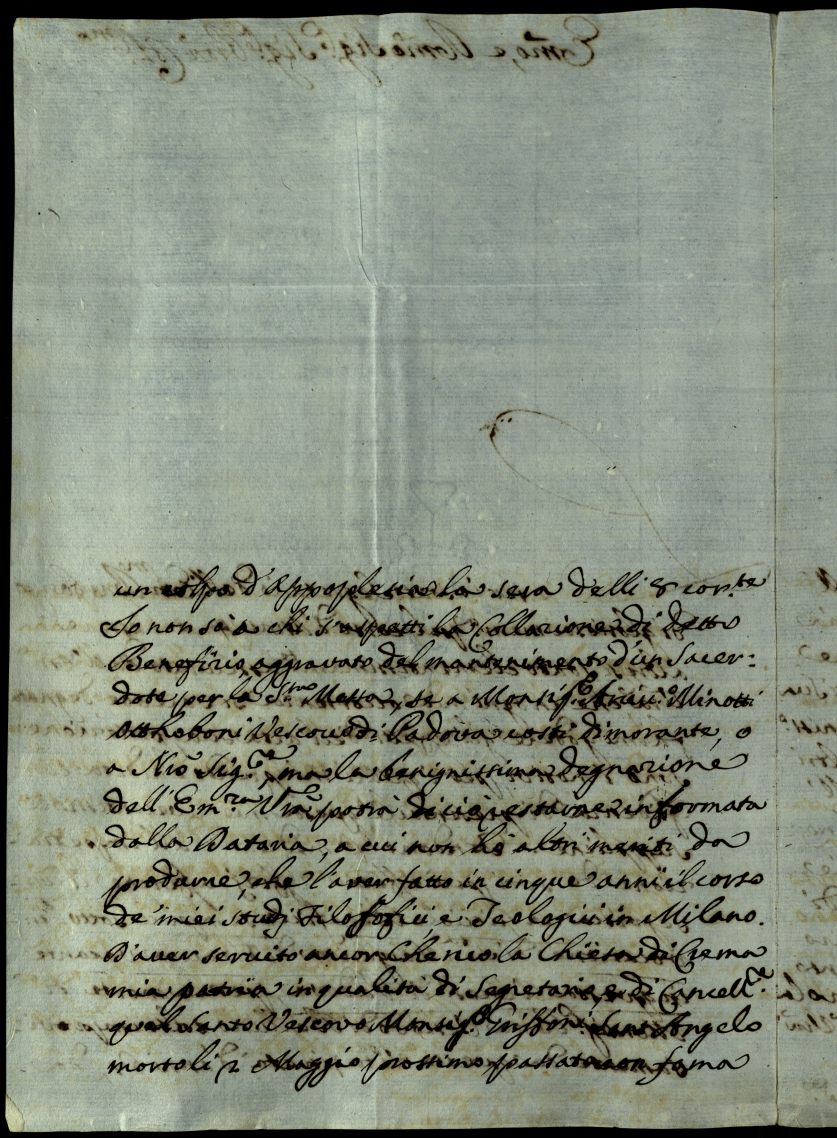 un colpo d'Appoplesia la sera delli 8 cor.te
Io non sò a chi s'aspetti la Collazione di detto
Benefizio aggravato del mantenimento d'un Sacer:
dote per la S.ta Messa, se a Monsig.r Minotti
Otthoboni Vescovo di Padova costì dimorante, o
a Nrõ Sig.re, ma la benignissima degnazione
dell'Em.za Vrã potrà di ciò restarne informata
dalla Dataria, a cui non hò altri meriti da
produrre, che l'aver fatto in cinque anni il corso
de' miei studj Filosofici, e Teologici in Milano.
D'aver servito ancor Cherico la Chiesa di Crema
mia patria in qualità di Segretario, e di Cancell.re
quel Santo Vescovo Monsig.r Griffoni Sant'Angelo
morto li Maggio prossimo passato con fama